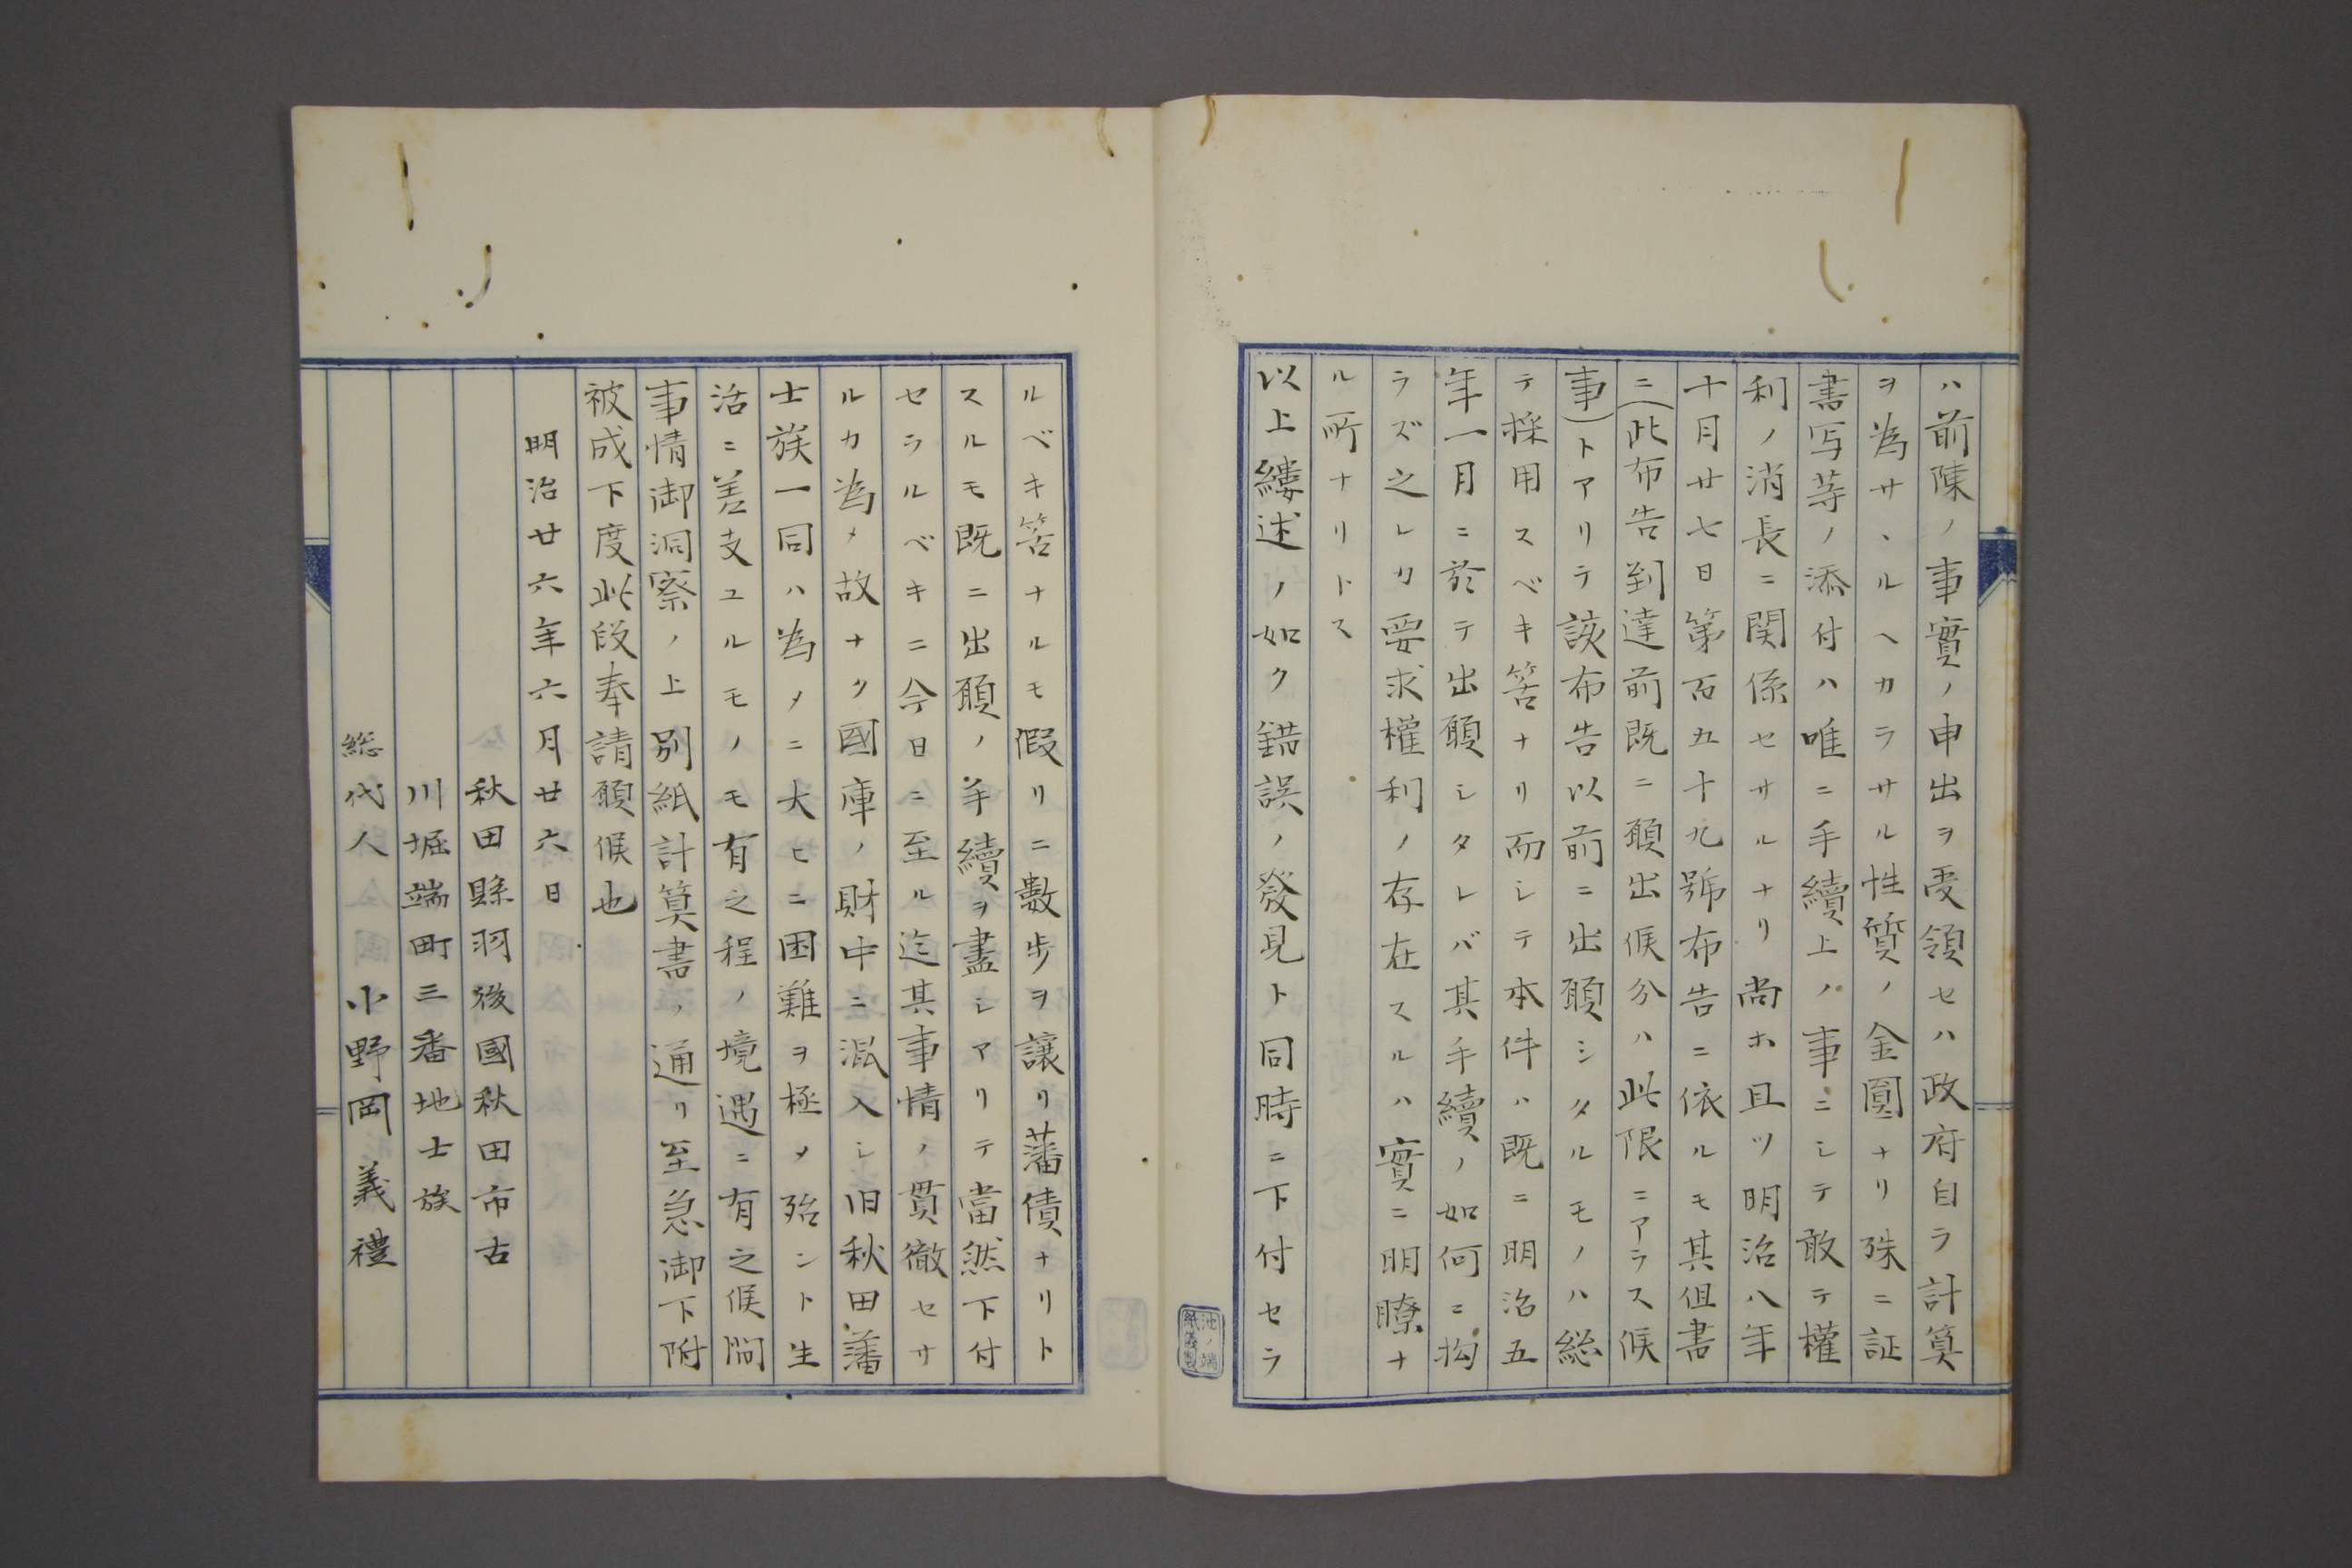 ハ前陳ノ事實ノ申出ヲ受領セハ政府自ラ計算
ヲ為サヽルヘカラサル性質ノ金圓ナリ殊ニ証
書写等ノ添付ハ唯ニ手續上ノ事ニシテ敢テ權
利ノ消長ニ関係セサルナリ尚ホ且ツ明治八年
十月廿七日第百五十九號布告ニ依ルモ其但書
ニ(此布告到達前既ニ願出候分ハ此限ニアラス候
事)トアリテ該布告以前ニ出願シタルモノハ総
テ採用スベキ筈ナリ而シテ本件ハ既ニ明治五
年一月ニ於テ出願シタレバ其手續ノ如何ニ拘
ラズ之レカ要求權利ノ存在スルハ實ニ明瞭ナ
ル所ナリトス
以上縷述ノ如ク錯誤ノ發見ト同時ニ下付セラ
ルベキ筈ナルモ假リニ數歩ヲ讓リ藩債ナリト
スルモ既ニ出願ノ手續ヲ盡シアリテ當然下付
セラルベキニ今日ニ至ル迄其事情ノ貫徹セサ
ルカ為メ故ナク國庫ノ財中ニ混入シ旧秋田藩
士族一同ハ為メニ大ヒニ困難ヲ極メ殆ント生
活ニ差支ユルモノモ有之程ノ境遇ニ有之候間
事情御洞察ノ上別紙計算書ノ通リ至急御下附
被成下度此段奉請願候也
明治廿六年六月廿六日
秋田縣羽後國秋田市古
川堀端町三番地士族
総代人 小野岡義禮
池ノ端